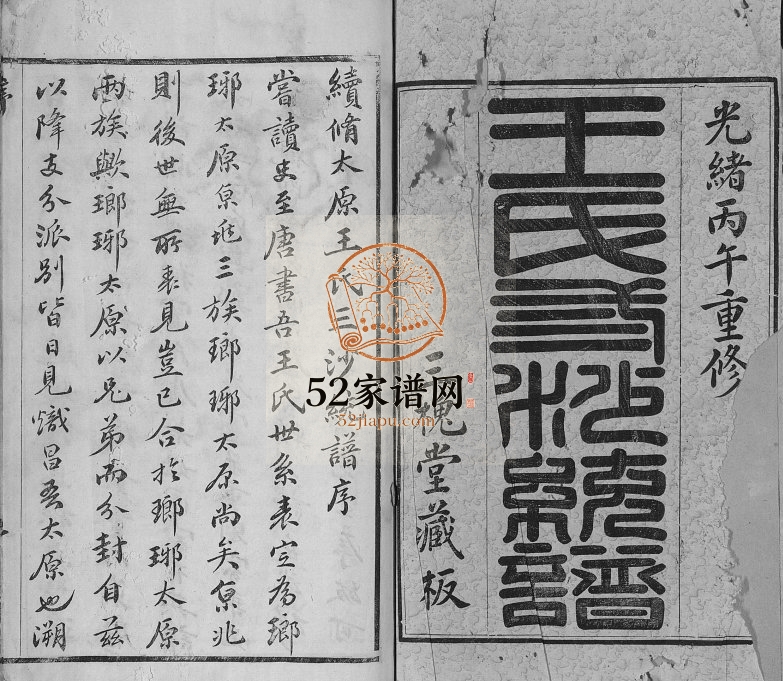 光緒丙午重修
王氏三沙統譜
三槐堂藏板
續脩太原王氏三沙統譜序
嘗讀史至唐書吾王氏世系表定為瑯
琊太原京兆三族瑯琊太原尚矣京兆
則後世無所表見豈已合於瑯琊太原
兩族歟瑯琊太原以兄弟而分封自茲
以降支分派別皆日見熾昌吾太原也溯
52家谱网
52jiapu.com